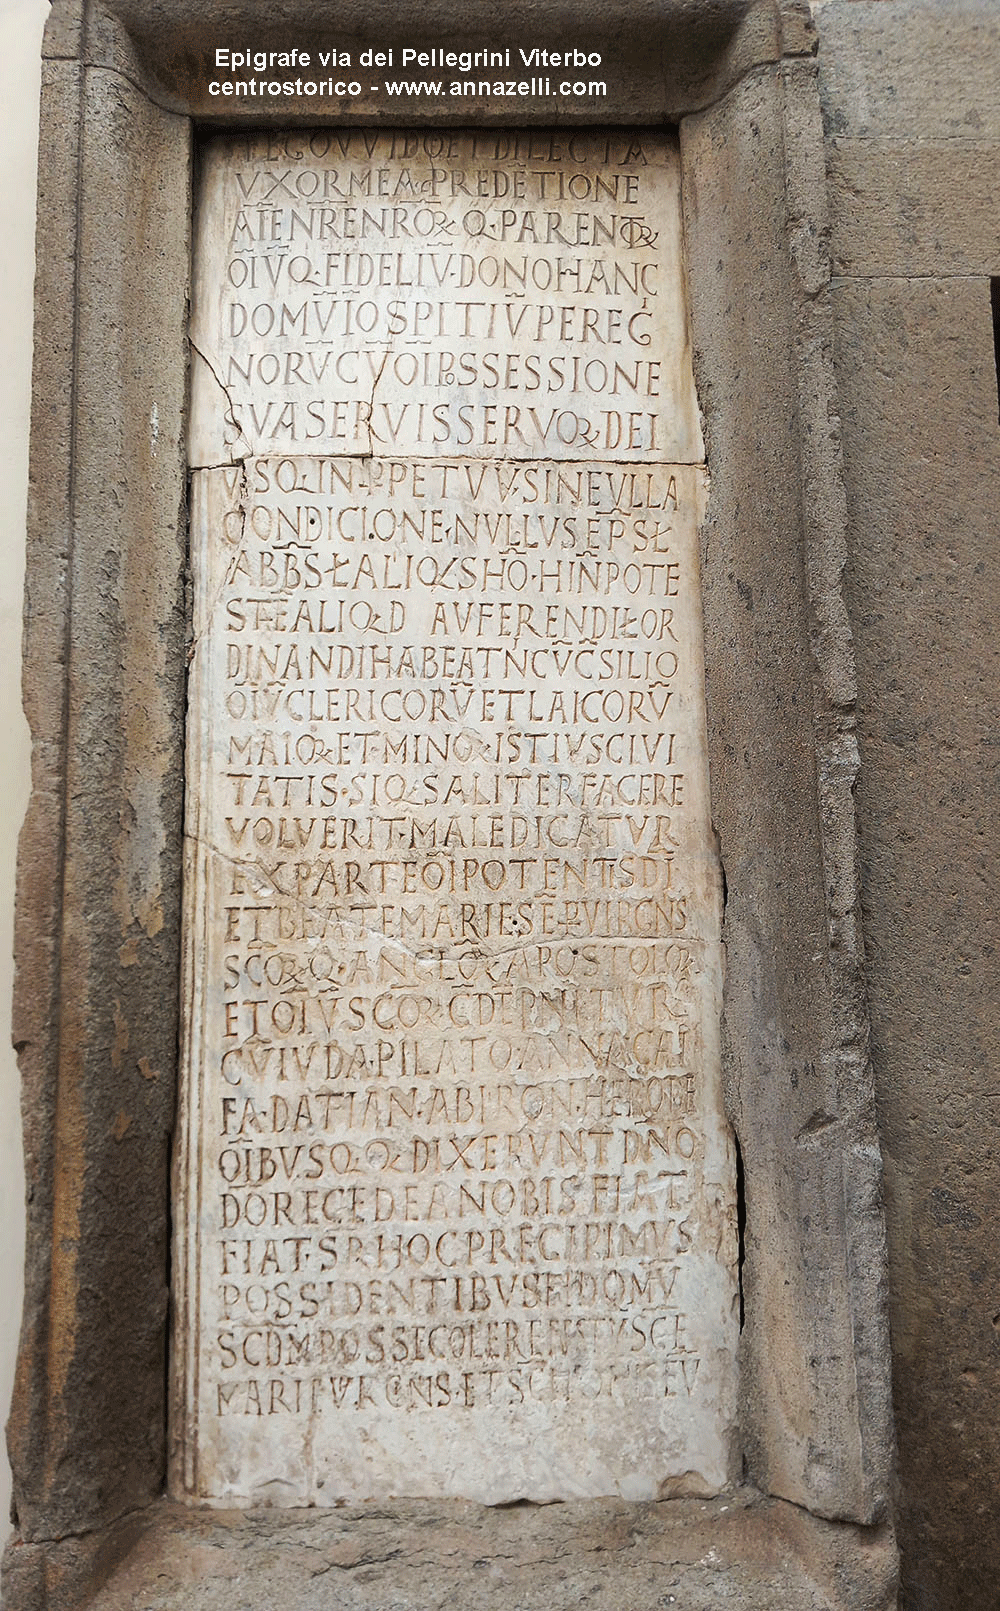 Epigrafe via dei Pellegrini Viterbo
centrostorico - www.annazelli.com
ET DILECTA
VXOR MEA PREDETIONE
AIENRENRO Q PAREN
OIVQ · FIDELIV · DONO HANC
DOMV IOSPITIV PEREG
NORV CV OI POSSESSIONE
SVA SERVIS SERVO DEI
VSQ IN PPETVV · SINE VLLA
CONDICIONE · NVLLVS EPS Ł
ABBS Ł ALIQS HO · HIN POTE
STE ALIQD AVFERENDI Ł OR
DINANDI HABEAT N CV CSILIO
OIV CLERICORV ET LAICORV
MAIO ET · MINO ISTIVS CIVI
TATIS · SI QS ALITER FACERE
VOLVERIT · MALEDICATVR
EX PARTE OIPOTENTIS DI
ET BEATE MARIE SEP VIRGNS
SCO Q · ANGLO APOSTOLO
ET OIV SCO C DEPNITVR
CV IVDA · PILATO · ANNA CAI
FA · DATIAN · ABIRON · HERODE
OIBVS Q Q DIXERVNT DNO
DO RECEDE A NOBIS FIAT
FIAT · S HOC PRECIPIMVS
POSSIDENTIBVS DOMV
SCDM POSSE
MARIE VIRGNS · ET SCI